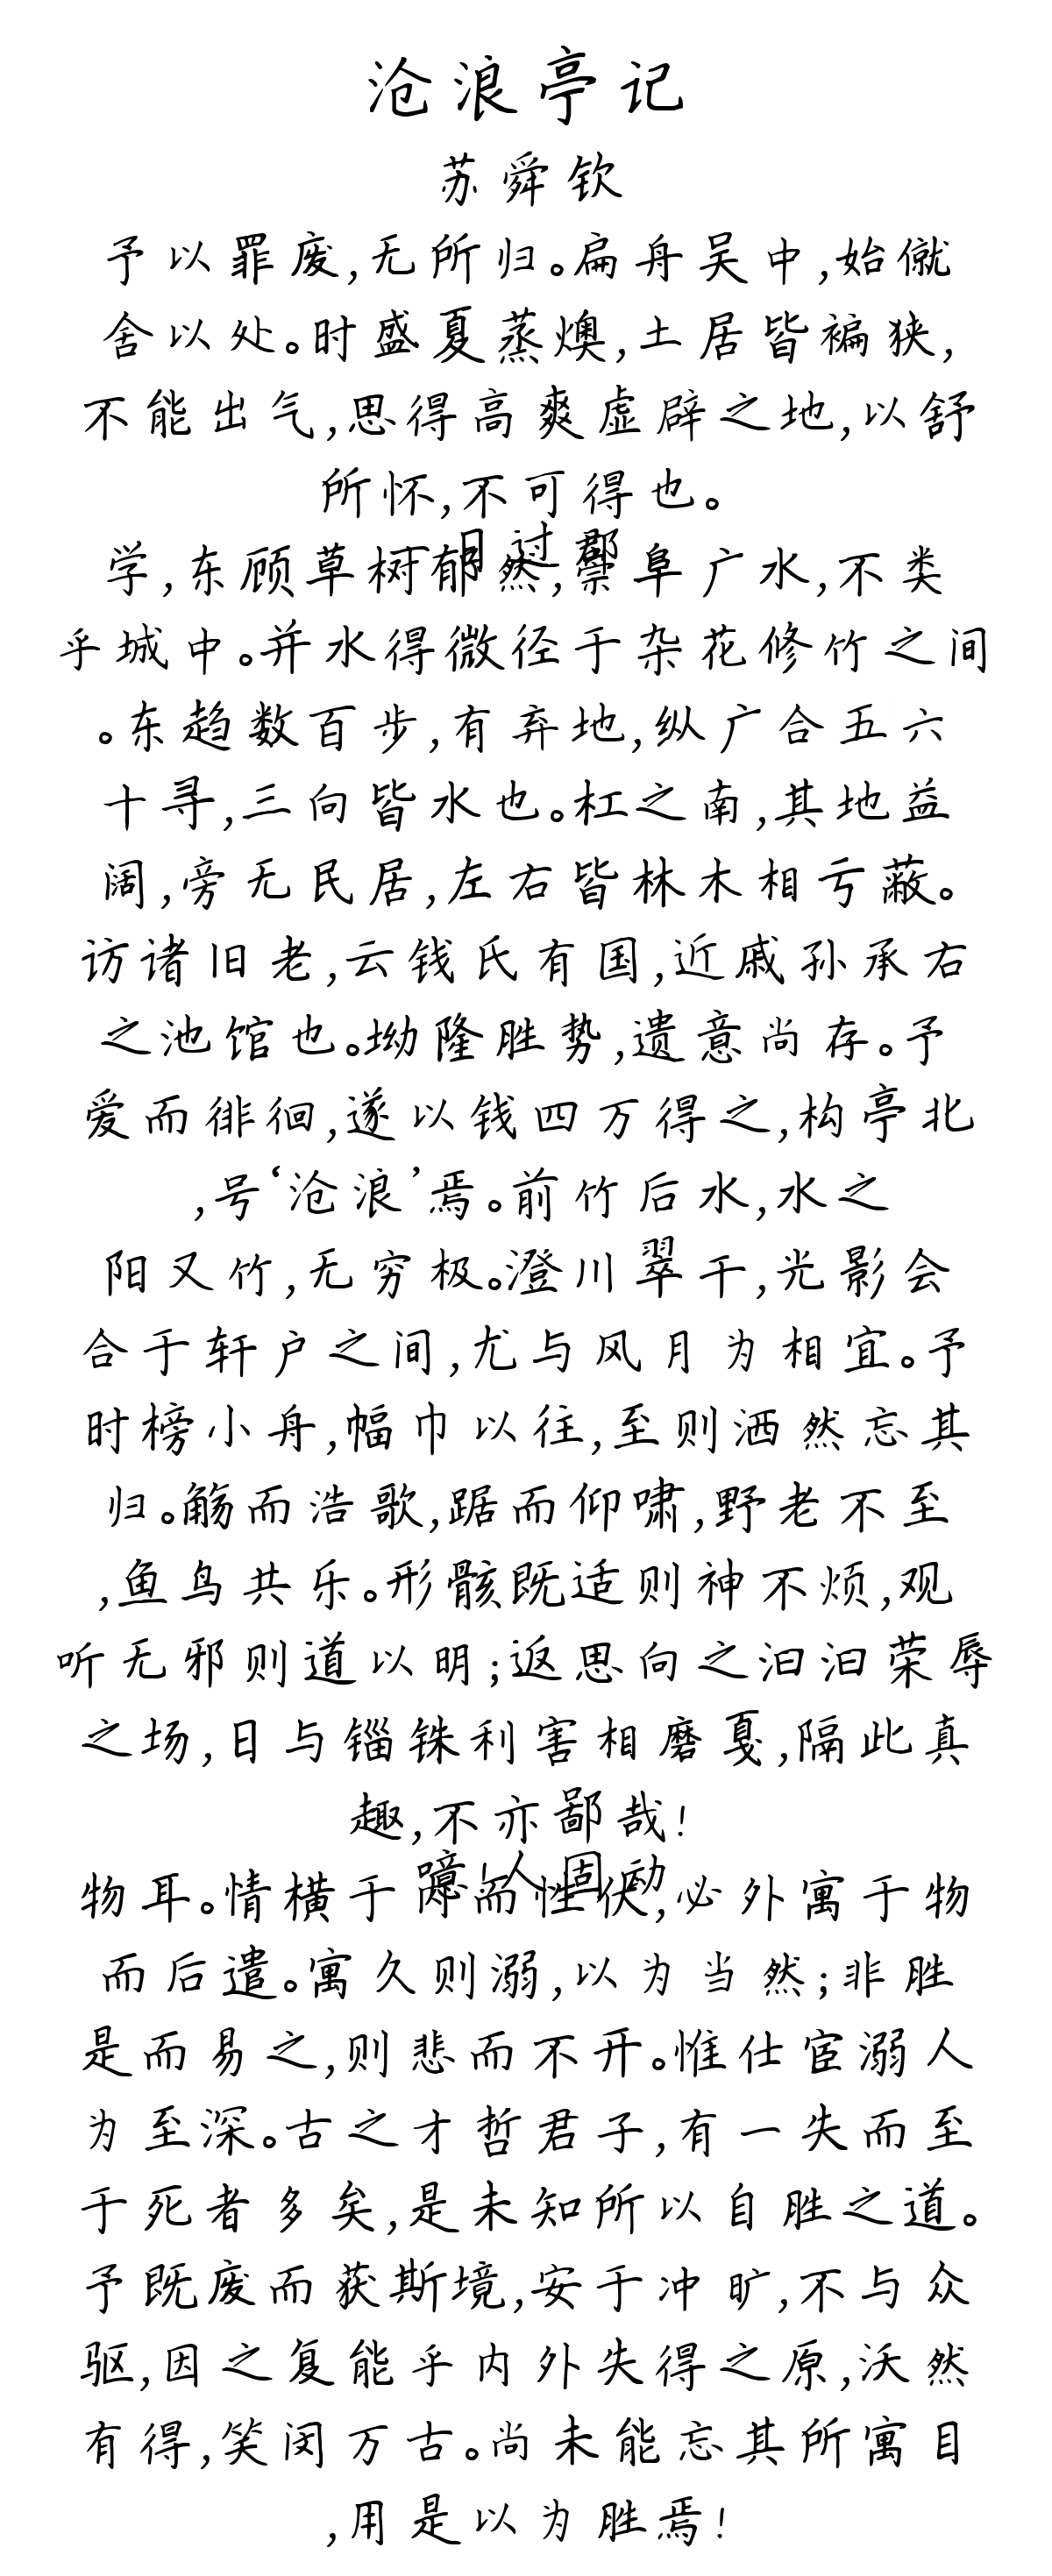 沧浪亭记
苏舜钦
予以罪废,无所归。扁舟吴中,始僦
舍以处。时盛夏蒸燠,土居皆褊狭,
不能出气,思得高爽虚辟之地,以舒
所怀,不可得也。
一日过郡
学,东顾草树郁然,崇阜广水,不类
乎城中。并水得微径于杂花修竹之间
。东趋数百步,有弃地,纵广合五六
十寻,三向皆水也。杠之南,其地益
阔,旁无民居,左右皆林木相亏蔽。
访诸旧老,云钱氏有国,近戚孙承右
之池馆也。坳隆胜势,遗意尚存。予
爱而徘徊,遂以钱四万得之,构亭北
,号‘沧浪’焉。前竹后水,水之
阳又竹,无穷极。澄川翠干,光影会
合于轩户之间,尤与风月为相宜。予
时榜小舟,幅巾以往,至则洒然忘其
归。觞而浩歌,踞而仰啸,野老不至
,鱼鸟共乐。形骸既适则神不烦,观
听无邪则道以明;返思向之汩汩荣辱
之场,日与锱铢利害相磨戛,隔此真
趣,不亦鄙哉!
噫!人固动
物耳。情横于内而性伏,必外寓于物
而后遣。寓久则溺,以为当然;非胜
是而易之,则悲而不开。惟仕宦溺人
为至深。古之才哲君子,有一失而至
于死者多矣,是未知所以自胜之道。
予既废而获斯境,安于冲旷,不与众
驱,因之复能乎内外失得之原,沃然
有得,笑闵万古。尚未能忘其所寓目
,用是以为胜焉!